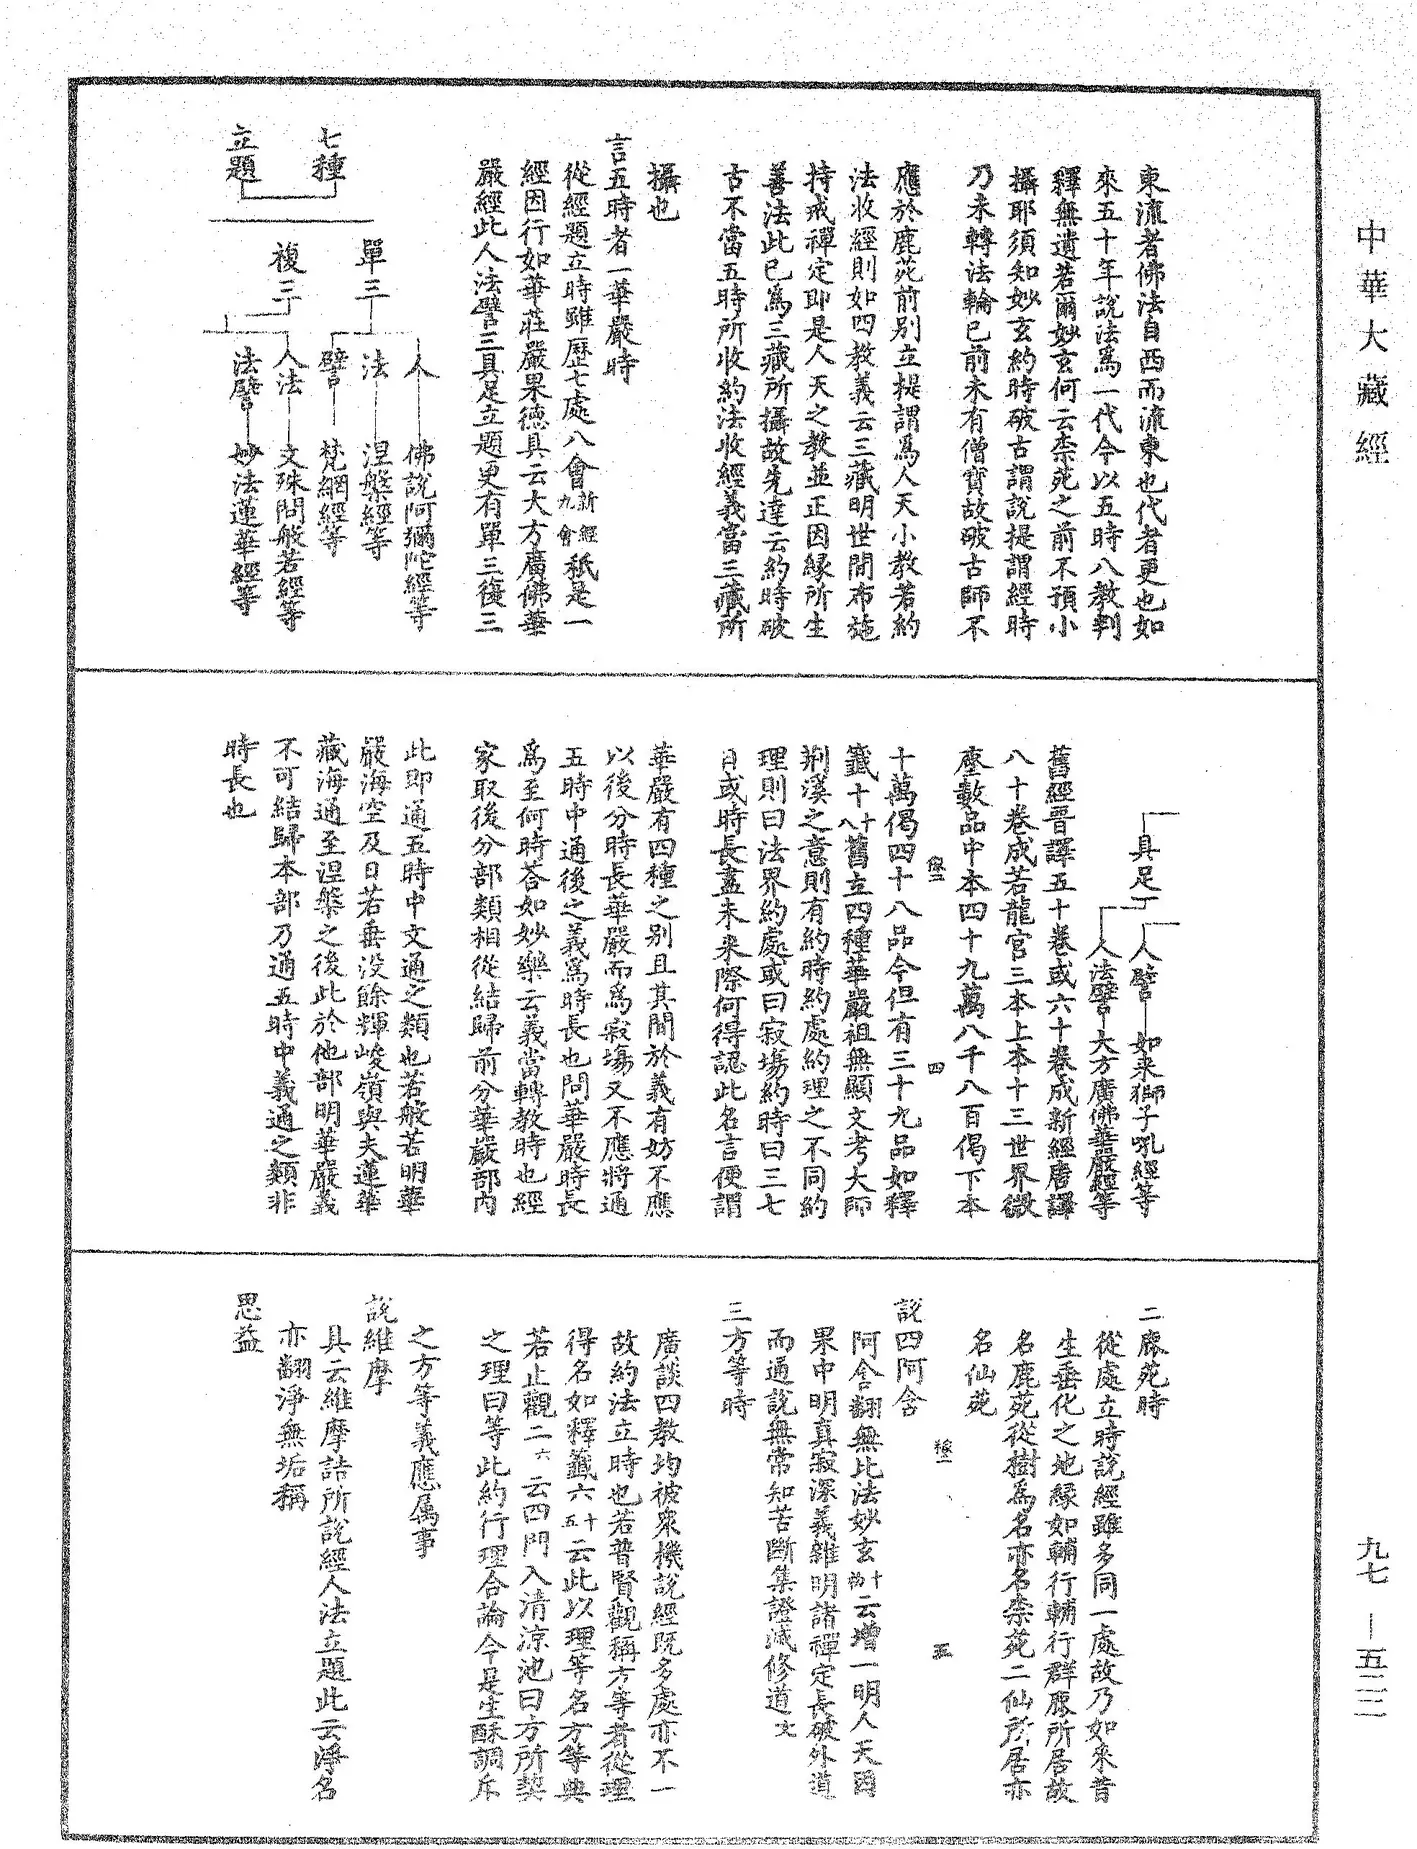 中華大藏經
東流者佛法自西而流東也代者更也如
來五十年說法爲一代今以五時八教判
釋無遺若爾妙玄何云柰苑之前不預小
攝耶須知妙玄約時破古謂說提謂經時
乃未轉法輪已前未有僧寶故破古師不
應於鹿苑前別立提謂爲人天小教若約
法收經則如四教義云三藏明世間布施
持戒禪定即是人天之教並正因緣所生
善法此已爲三藏所攝故先達云約時破
古不當五時所收約法收經義當三藏所
攝也
言五時者一華嚴時
從經題立時雖歷七處八會新經九會秖是一
經因行如華莊嚴果德具云大方廣佛華
嚴經此人法譬三具足立題更有單三復三
七種立題
單三
人 佛說阿彌陀經等
法 涅槃經等
譬 梵網經等
複三
人法 文殊問般若經等
法譬 妙法蓮華經等
人譬 如來獅子吼經等
具足一
人法譬 大方廣佛華嚴經等
舊經晉譯五十卷或六十卷成新經唐譯
八十卷成若龍宮三本上本十三世界微
塵數品中本四十九萬八千八百偈下本
四
十萬偈四十八品今但有三十九品如釋
籤十十八舊立四種華嚴祖無顯文考大師
荊溪之意則有約時約處約理之不同約
理則曰法界約處或曰寂場約時曰三七
日或時長盡未來際何得認此名言便謂
華嚴有四種之別且其間於義有妨不應
以後分時長華嚴而爲寂場又不應將通
五時中通後之義爲時長也問華嚴時長
爲至何時荅如妙樂云義當轉教時也經
家取後分部類相從結歸前分華嚴部內
此即通五時中文通之類也若般若明華
嚴海空及日若垂没餘輝峻嶺與夫蓮華
藏海通至涅槃之後此於他部明華嚴義
不可結歸本部乃通五時中義通之類非
時長也
二鹿苑時
從處立時說經雖多同一處故乃如來昔
生垂化之地緣如輔行輔行群鹿所居故
名鹿苑從樹爲名亦名柰苑二仙所居亦
名仙苑
五
說四阿含
阿含翻無比法妙玄十云增一明人天因
果中明真寂深義雜明諸禪定長破外道
而通說無常知苦斷集證滅修道文
三方等時
廣談四教均被衆機說經既多處亦不一
故約法立時也若普賢觀稱方等者從理
得名如釋籤六十五云此以理等名方等典
若止觀二六云四門入清涼池曰方所契
之理曰等此約行理合論今是生酥調斥
之方等義應属事
說維摩
具云維摩詰所說經人法立題此云淨名
亦翻淨無垢稱
思益
九七—五二二